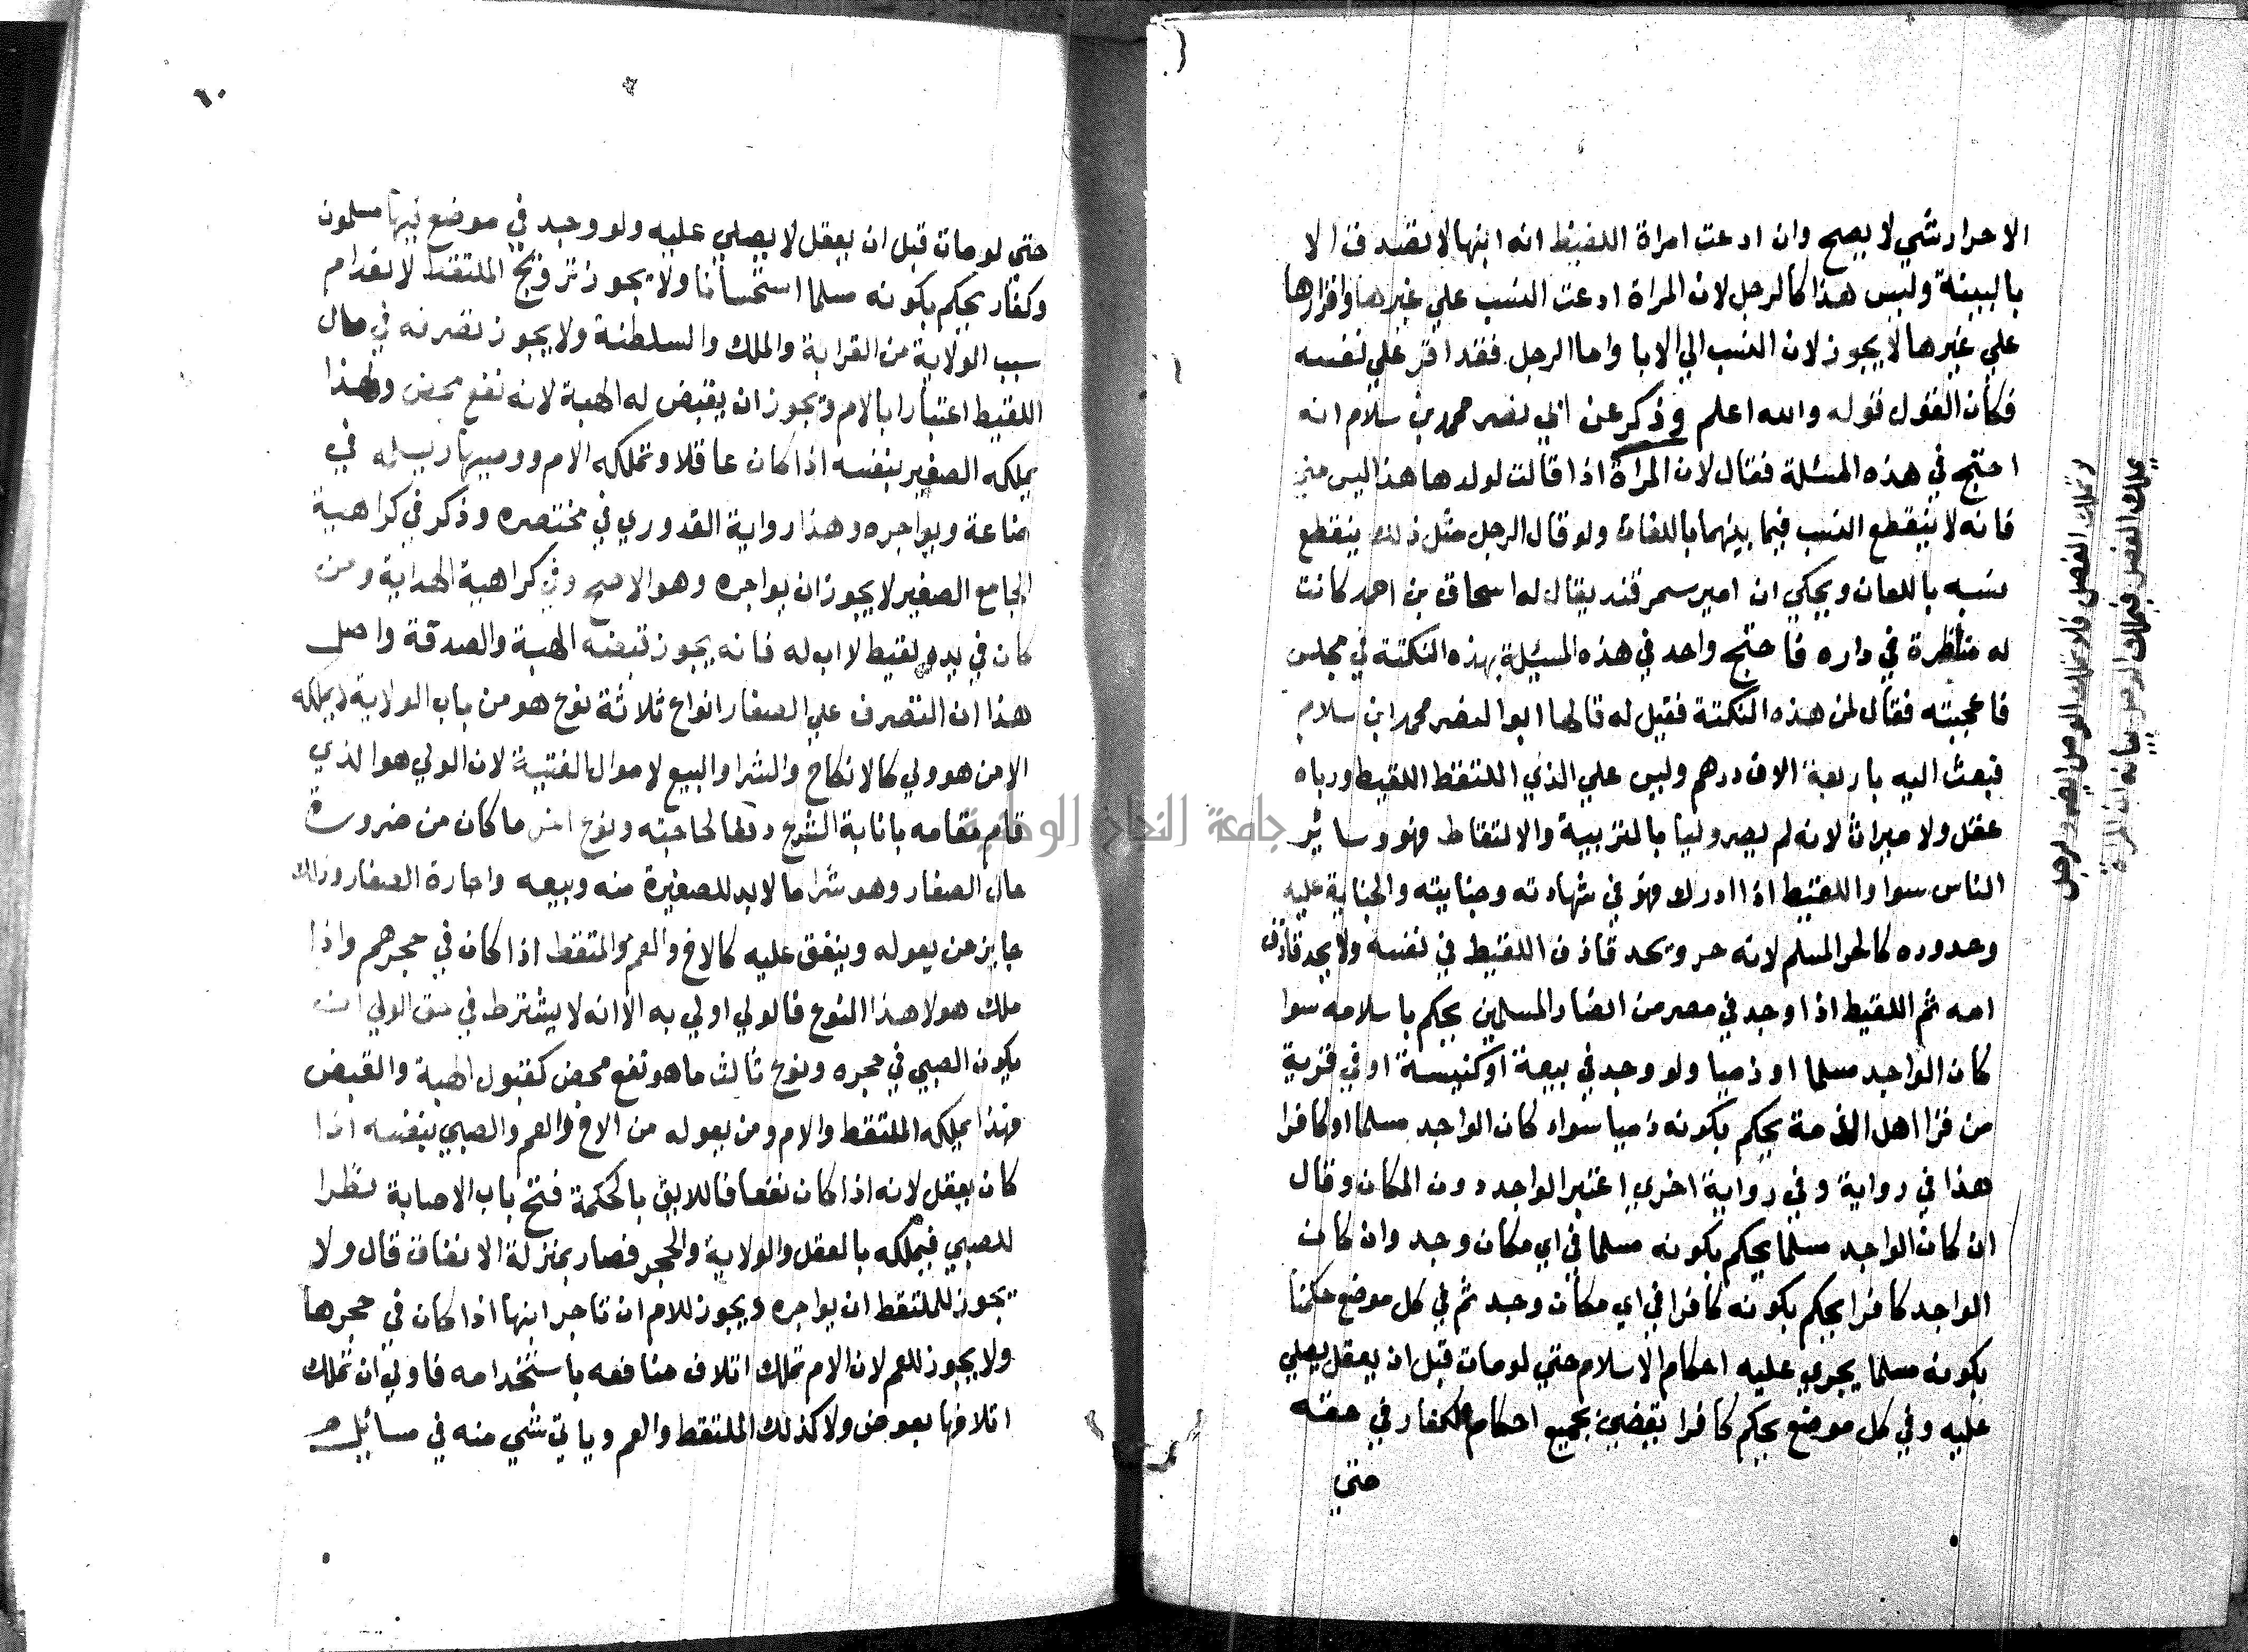 الاحرار شي لا يصح وان ادعت امراة اللقيط انه ابنها لا تصدق الا
بالبينة وليس هذا كالرجل لان المراة ادعت النسب علي غيرها واقرارها
علي غيرها لا يجوز لان النسب الي الابا واما الرجل فقد اقر علي نفسه
فكان القول قوله والله اعلم وذكر عن ابي نصر محمد بن سلام انه
احتج في هذه المسئلة فقال لان المراة اذا قالت لولدها هذا ليس مني
فانه لا ينقطع النسب فيما بينهما باللعان ولو قال الرجل مثل ذلك ينقطع
نسبه باللعان ويحكي ان امير سمرقند يقال له اسحاق بن احمد كانت
له مناظرة في داره فاحتج واحد في هذه المسئلة بهذه النكتة في مجلس
فاعجبته فقال لمن هذه النكتة فقيل له قالها ابوا النصر محمد ابن سلام
فبعث اليه باربعة الاف درهم وليس علي الذي التقط اللقيط ورباه
عقل ولا ميراث لانه لم يصر وليا بالتربية والالتقاط فهو وسائر
الناس سوا واللقيط اذا ادرك فهو في شهادته وجنايته والجناية عليه
وحدوده كالحر المسلم لانه حر ويحد قاذف اللقيط في نفسه ولا يحد قاذف
امه ثم اللقيط اذا وجد في مصر من امصار المسلمين يحكم باسلامه سوا
كان الواجد مسلما او ذميا ولو وجد في بيعة او كنيسة او في قرية
من قرا اهل الذمة يحكم بكونه ذميا سواء كان الواجد مسلما او كافرا
هذا في رواية وفي رواية اخري اعتبر الواجد دون المكان وقال
ان كان الواجد مسلما يحكم بكونه مسلما في اي مكان وجد وان كان
الواجد كافرا يحكم بكونه كافرا في اي مكان وجد ثم في كل موضع حكمنا
بكونه مسلما يجري عليه احكام الاسلام حتي لو مات قبل ان يعقل يصلي
عليه وفي كل موضع يحكم كافرا يقضي بجميع احكام الكفار في حقه
حتي
٦٠
حتي لو مات قبل ان يعقل لا يصلي عليه ولو وجد في موضع فيها مسلمون
وكفار يحكم بكونه مسلما استحسانا ولا يجوز تزويج الملتقط لانعدام
سبب الولاية من القرابة والملك والسلطنة ولا يجوز تصرفه في مال
اللقيط اعتبارا بالام ويجوز ان يقبض له الهبة لانه نفع محض ولهذا
يملكه الصغير بنفسه اذا كان عاقلا وتملكه الام ووصيها ويسلمه في
صناعة ويواجره وهذا رواية القدوري في مختصره وذكر في كراهية
الجامع الصغير لا يجوز ان يواجره وهو الاصح وفي كراهية الهداية ومن
كان في يده لقيط لا اب له فانه يجوز قبضه الهبة والصدقة واصل
هذا ان التصرف علي الصغار انواع ثلاثة نوع هو من باب الولاية لا يملكه
الا من هو ولي كالانكاح والشرا والبيع لاموال القنية لان الولي هو الذي
قام مقامه بانابة الشرع دفعا لحاجته ونوع اخر ما كان من ضرورة
حال الصغار وهو شرا ما لابد للصغيرة منه وبيعه واجارة الصغار وذلك
جايز من يعوله وينفق عليه كالاخ والعم والملتقط اذا كان في حجرهم واذا
ملك هولا هذا النوع فالولي اولي به الا انه لا يشترط في حق الولي ان
يكون الصبي في حجره ونوع ثالث ما هو نفع محض كقبول الهبة والقبض
فهذا يملكه الملتقط والام ومن يعوله من الاخ والعم والصبي بنفسه اذا
كان يعقل لانه اذا كان نفعا فاللايق بالحكمة فتح باب الاصابة نظرا
للصبي فيملكه بالعقل والولاية والحجر فصار بمنزلة الانفاق قال ولا
يجوز للملتقط ان يواجره ويجوز للام ان تاجر ابنها اذا كان في حجرها
ولا يجوز للعم لان الام تملك اتلاف منافعه باستخدامه فاولي ان تملك
اتلافها بعوض ولا كذلك الملتقط والعم وياتي شي منه في مسائل
جامعة النجاح الوطنية